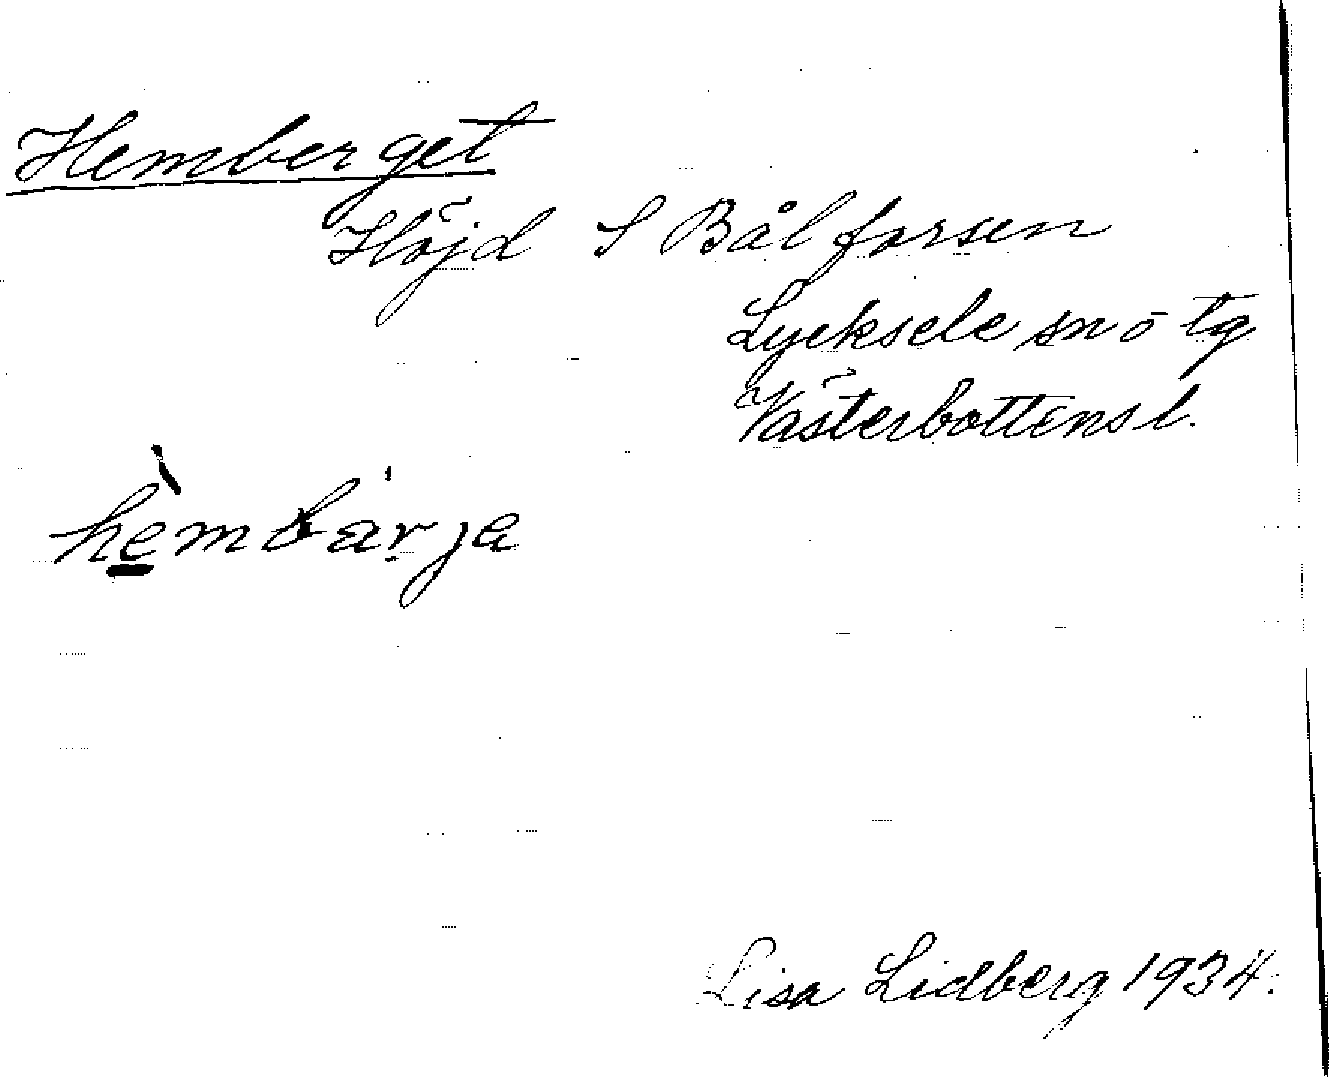 Hemberget
Höjd S Bålforsen
Lycksele sn o tg
Västerbottens l.
hèmbäŕja
Lisa Lidberg 1934.